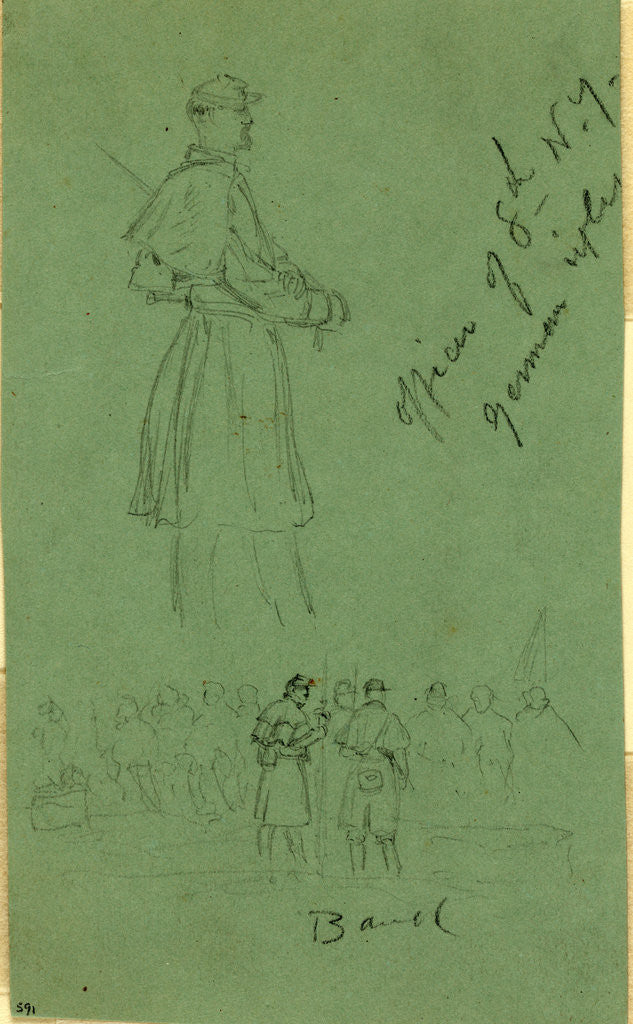 Officer of 8th N.Y.
German rifles
Band
591